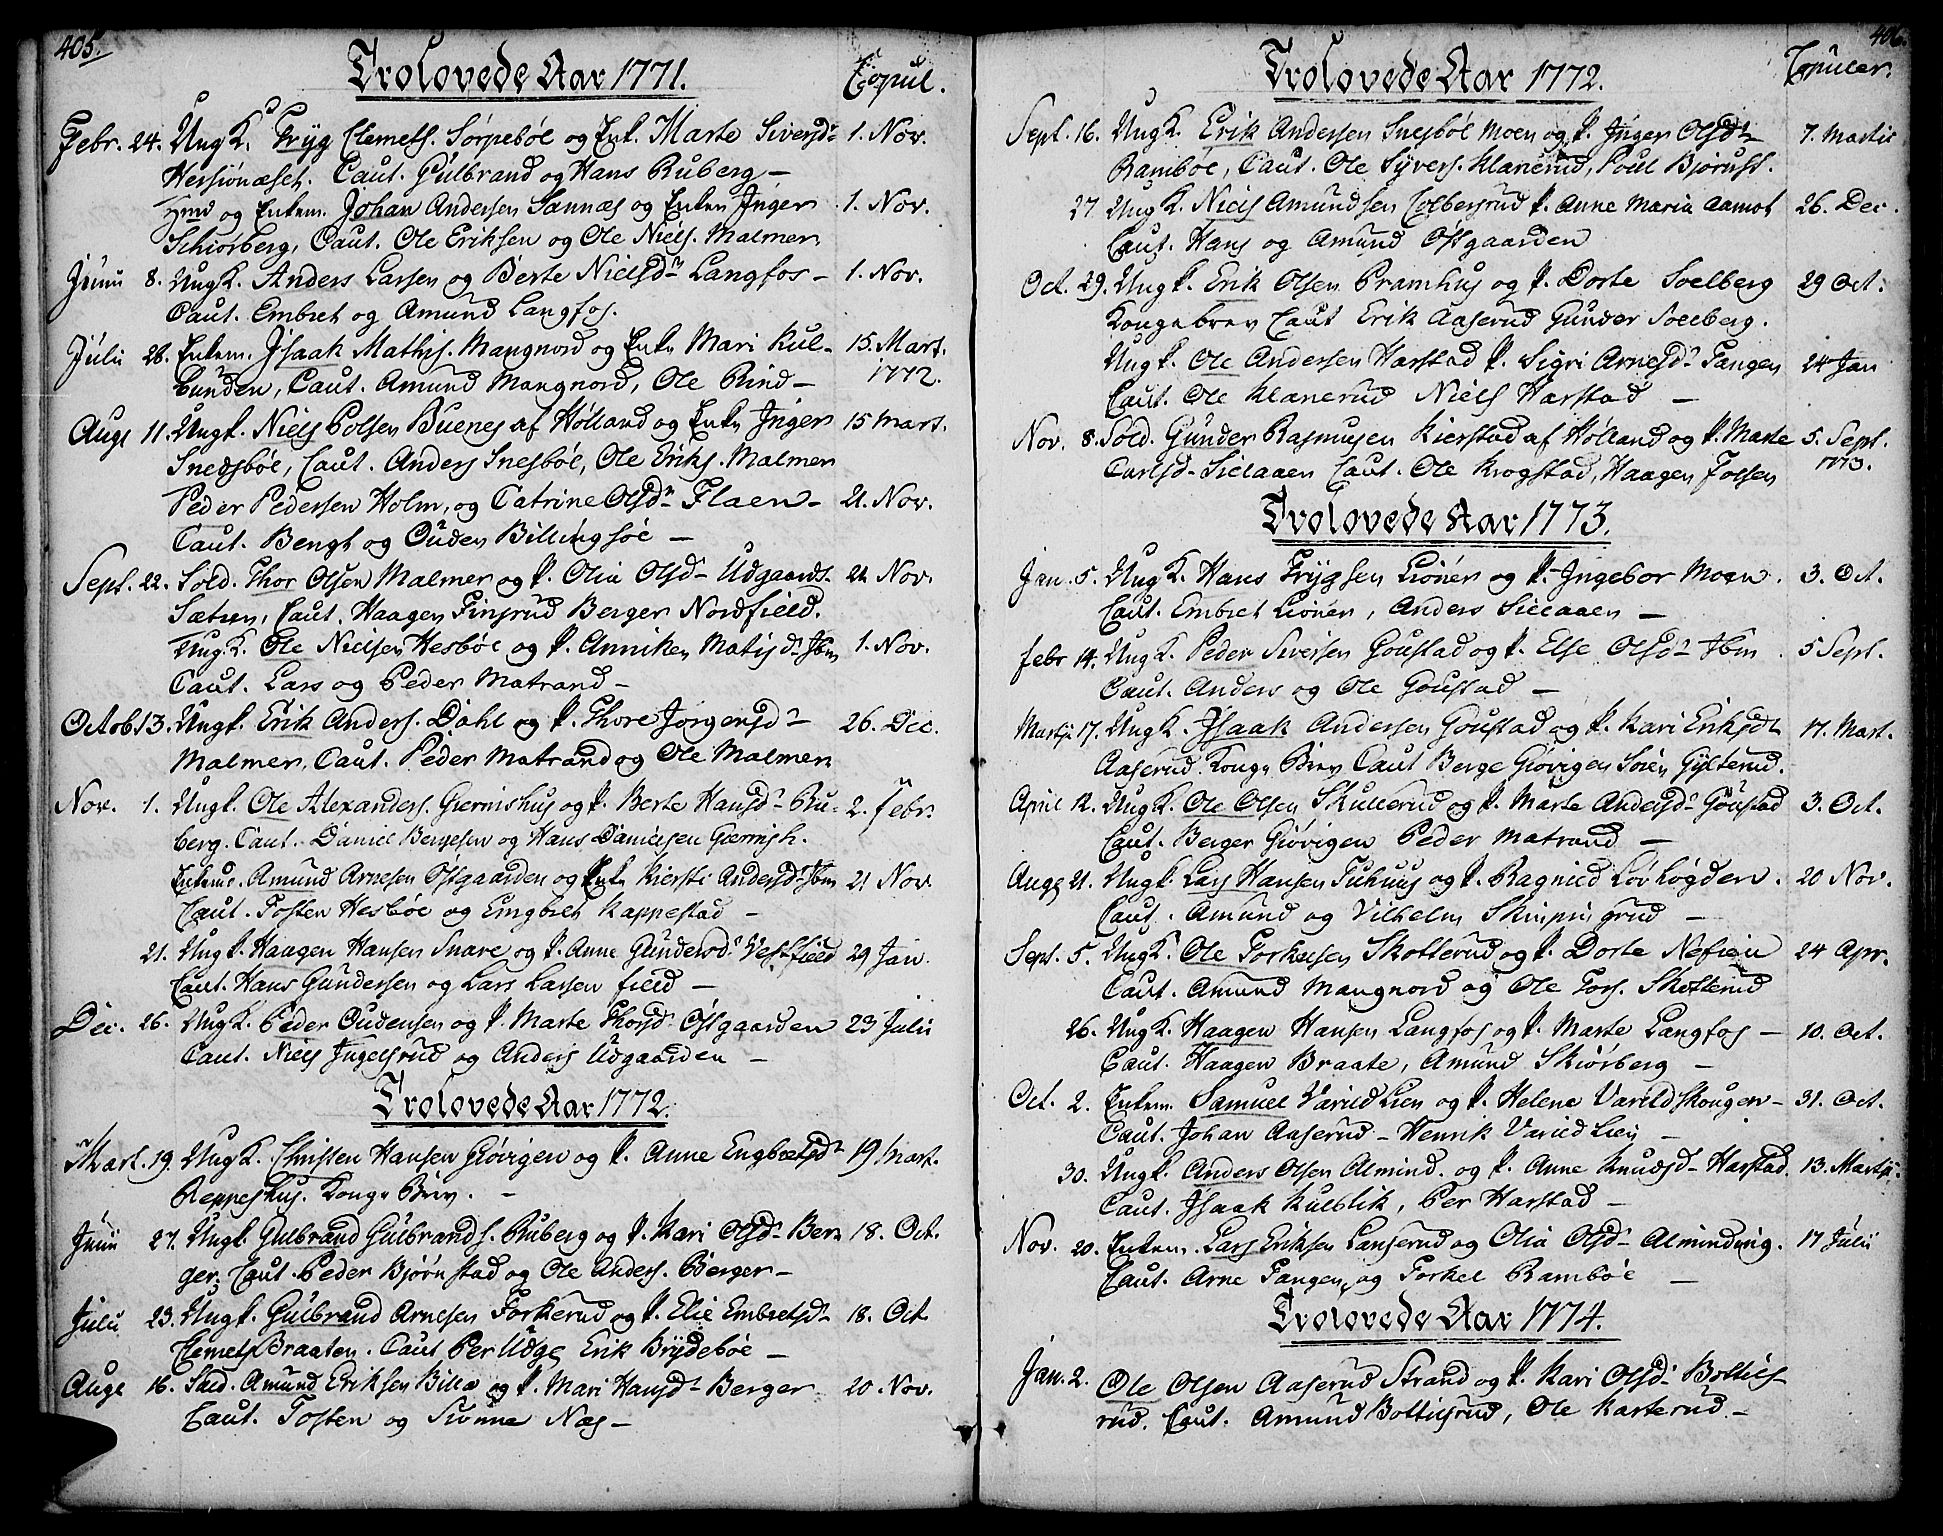 405.
Trolovede Aar 1771. Copul.
Febr. 24. Ung K. Tryg Clemets. Sørpebøe og Enk. Marte Siversd. 1. Nov.
Caut. Gülbrand og Hans Ruberg –
og Enkem. Johan Andersen Sannæs og Enken Inger 1. Nov.
Schiørberg, Caut. Ole Eriksen og Ole Niels. Malmer
Junii 8. Ung K. Anders Larsen og Berte Nielsdr Langfos – 1. Nov.
Caut. Embret og Amund Langfos.
Julii 28. Enkem. Isaak Mathis. Mangnord og Enke Mari Kul- 15. Mart. 1772.
bunden, Caut. Amund Mangnord, Ole Rind –
Augs 11. Ungk. Niels Polsen Buenes af Hølland og Enke Inger 15 Mart.
Snedsbøe, Caut. Anders Snesbøe, Ole Eriks. Malmer
Peder Pedersen Holm, og Catrine Olsdr Flaen – 21. Nov.
Caut. Bengt og Ouden Billingsøe –
Sept. 22. Sold. Thor Olsen Malmer og P. Olia Olsd. Udgaards- 21. Nov.
Sætren, Caut. Haagen Finsrud Berger Nordfield.
Ung K. Ole Nielsen Hesbøe og P. Anniken Matisdr Ibm 1. Nov.
Caut. Lars og Peder Matrand –
Octob 13. Ungk. Erik Anders. Dahl og P. Thore Jørgensdr 26. Dec.
Malmer, Caut. Peder Matrand og Ole Malmer
Nov. 1. Ungk. Ole Alexanders. Giernishus og P. Berte Hansdr Ru- 2. Febr.
berg. Caut. Daniel Bergesen og Hans Danielsen Giernish.
Enkem. Amund Arnesen Østgaarden og Enke Kiersti Andersdr Ibm 21 Nov.
Caut. Tosten Hesbøe og Engbret Kappestad –
21. Ung K. Haagen Hansen Snare og P. Anne Gundersdr Vestfield 29 Jan.
Caut. Hans Gundersen og Lars Larsen field –
Dec. 26. Ung K. Peder Oudensen og P. Marte Thorsd. Østgaarden 23 Julii
Caut. Niels Ingelsrud og Anders Udgaarden –
Trolovede Aar 1772.
Mart. 19. Ung K. Christen Hansen Giøvigen og P. Anne Engbretsdr 19 Mart.
Reppeshus. Konge Brev. –
Junii 27. Ungk. Gulbrand Gülbrands. Ruberg og P. Kari Olsdr Ber 18. Oct.
ger. Caut. Peder Bjørnstad og Ole Anders. Berger –
Julii 23. Ungk. Gülbrand Arnesen Torkerud og P. Elie Embretsdr 18. Oct
Clemets Braaten. Caut Per Udgs Erik Brydebøe –
Augs 16. Sold. Amund Eriksen Billa og P. Mari Hansdr Berger 20. Nov.
Caut. Tosten og Siønne Næs –
406.
Trolovede Aar 1772. Copuler.
Sept. 16. Ung K. Erik Andersen Snesbøl moen og P. Inger Olsdr 7. Martii
Rambøe, Caut. Ole Syvers. Klanerud, Poul Bjørust.
27. Ung K. Niels Amundsen Colbersrud P. Anne Maria Aamot 26. Dec.
Caut. Hans og Amund Ostgaarden
Oct. 29. Ungk. Erik Olsen Pramhus og P. Dorte Soelberg 29 Oct.
Kongebrev Caut Erik Aaserud Gunder Soelberg.
Ungk. Ole Andersen Harstad P. Sigri Arnesdr Tangen 24 Jan
Caut. Ole Klanerud Niels Harstad –
Nov. 8. Sold. Gunder Rasmusen Kierstad af Hølland og P. Marte 5. Sept. 1773.
Carlsd. Sielaaen Caut. Ole Krogstad, Haagen Folsen
Trolovede Aar 1773.
Jan. 5. Ung K. Hans Trygsen Liøner og P. Ingebor Moen. 3. Oct.
Caut. Embret Liøner, Anders Sielaaen –
Febr 14. Ung K. Peder Siversen Goustad og P. Else Olsdr Ibm. 5 Sept.
Caut. Anders og Ole Goustad –
Martii 17. Ung K. Isaak Andersen Goustad og P. Kari Eriksdr 17. Mart.
Aaserud. Konge Brev Caut Berge Giøvigen Søren Gylterud.
April 12. Ung K. Ole Olsen Skullerud og P. Marte Andersdr Goustad 3. Oct.
Caut. Berger Giøvigen Peder Matrand –
Augs 21. Ungk. Lars Hansen Tuhuus og P. Ragnild Løvhøgden. 20 Nov.
Caut. Amund og Vilhelm Skinpingrud –
Sept. 5. Ung K. Ole Torkelsen Skotterud og P. Dorte 24 Apr.
Caut. Amund Mangnord og Ole Tors. Skotterud
26. Ung K. Haagen Hansen Langfos og P. Marte Langfos – 10. Oct.
Caut. Haagen Braate, Amund Skiørberg –
Oct. 2. Enkem. Samuel Varild Lien og P. Helene Varildskougen – 31. Oct.
Caut. Johan Aaserud – Henrik Varild Lien –
30. Ungk. Anders Olsen Almind. og P. Anne Knudsd. Harstad. 13. Martii
Caut. Isaak Kulblik, Per Harstad –
Nov. 20. Enkem. Lars Eriksen Lanserud og Olia Olsd. Alminding. 17 Julii
Caut. Arne Tangen og Torkel Rambøe –
Trolovede Aar 1774.
Jan. 2. Ole Olsen Aaserud Strand og P. Kari Olsd. Bottils-
rud. Caut. Amund Bottilsrud, Ole Karterud –